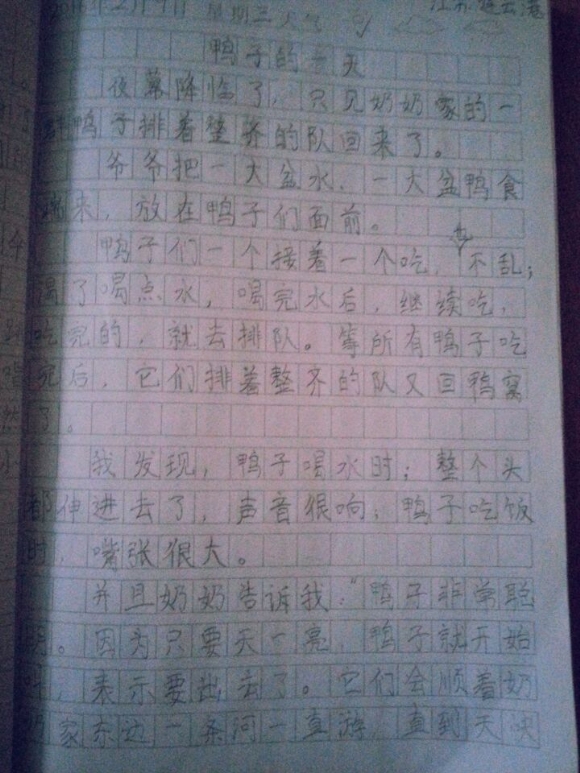 2月9日 星期三 天气 江苏连云港
鸭子的一天
夜幕降临了，只见奶奶家的一
群鸭子排着整齐的队回来了。
爷爷把一大盆水，一大盆鸭食
端来，放在鸭子们面前。
鸭子们一个接着一个吃，不乱；
渴了喝点水，喝完水后，继续吃，
吃完的，就去排队。等所有鸭子吃
完后，它们排着整齐的队又回鸭窝
了。
我发现，鸭子喝水时；整个头
都伸进去了，声音很响；鸭子吃饭
时，嘴张很大。
并且奶奶告诉我：“鸭子非常聪
明。因为只要天一亮，鸭子就开始
叫，表示要出去了。它们会顺着奶
奶家东边一条河一直游，直到天快